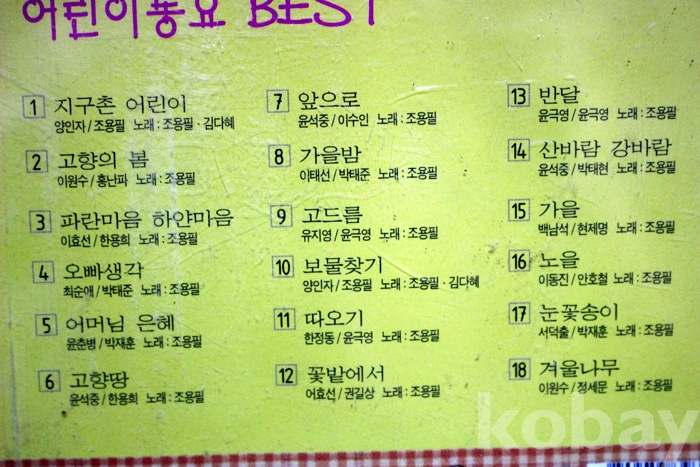 어린이동요 BEST
1 지구촌 어린이
양인자 / 조용필 노래 : 조용필 · 김다혜
2 고향의 봄
이원수 / 홍난파 노래 : 조용필
3 파란마음 하얀마음
이효선 / 한용희 노래 : 조용필
4 오빠생각
최순애 / 박태준 노래 : 조용필
5 어머님 은혜
윤춘병 / 박재훈 노래 : 조용필
6 고향땅
윤석중 / 한용희 노래 : 조용필
7 앞으로
윤석중 / 이수인 노래 : 조용필
8 가을밤
이태선 / 박태준 노래 : 조용필
9 고드름
유지영 / 윤극영 노래 : 조용필
10 보물찾기
양인자 / 조용필 노래 : 조용필 · 김다혜
11 따오기
한정동 / 윤극영 노래 : 조용필
12 꽃밭에서
어효선 / 권길상 노래 : 조용필
13 반달
윤극영 / 윤극영 노래 : 조용필
14 산바람 강바람
윤석중 / 박태현 노래 : 조용필
15 가을
백남석 / 현제명 노래 : 조용필
16 노을
이동진 / 안호철 노래 : 조용필
17 눈꽃송이
서덕출 / 박재훈 노래 : 조용필
18 겨울나무
이원수 / 정세문 노래 : 조용필
kobay